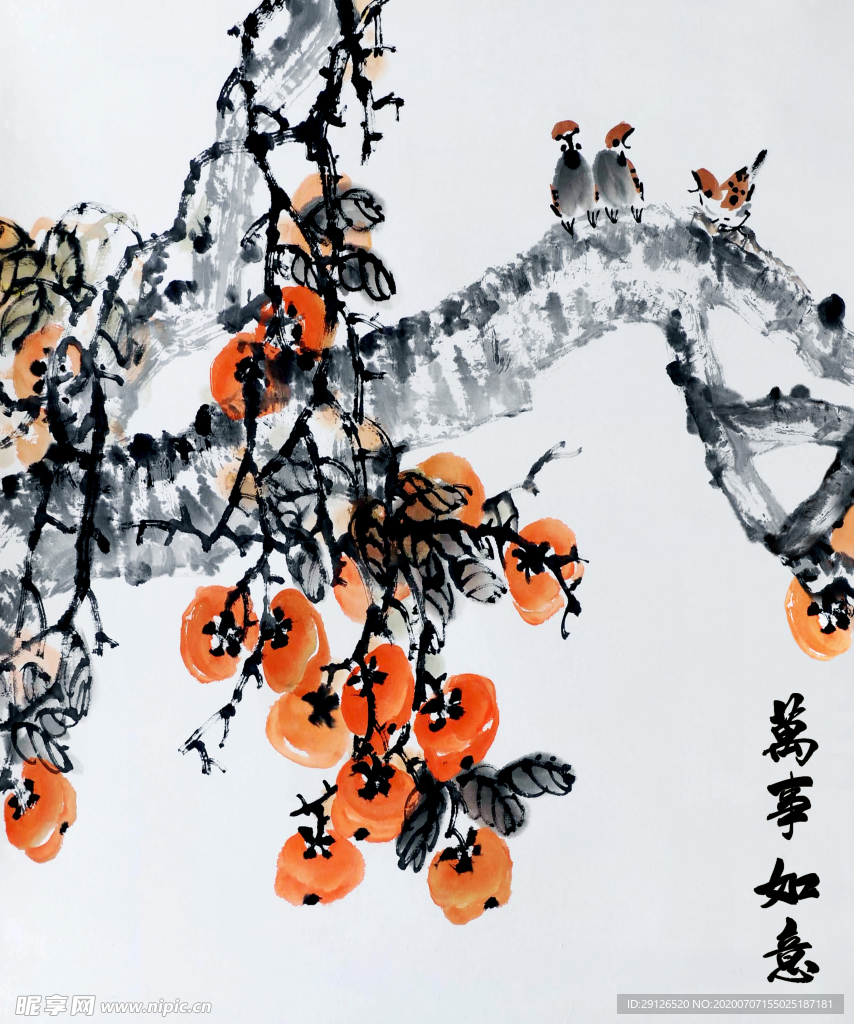 萬事如意
昵享网 www.nipic.cn
ID:29126520 NO:20200707155025187181